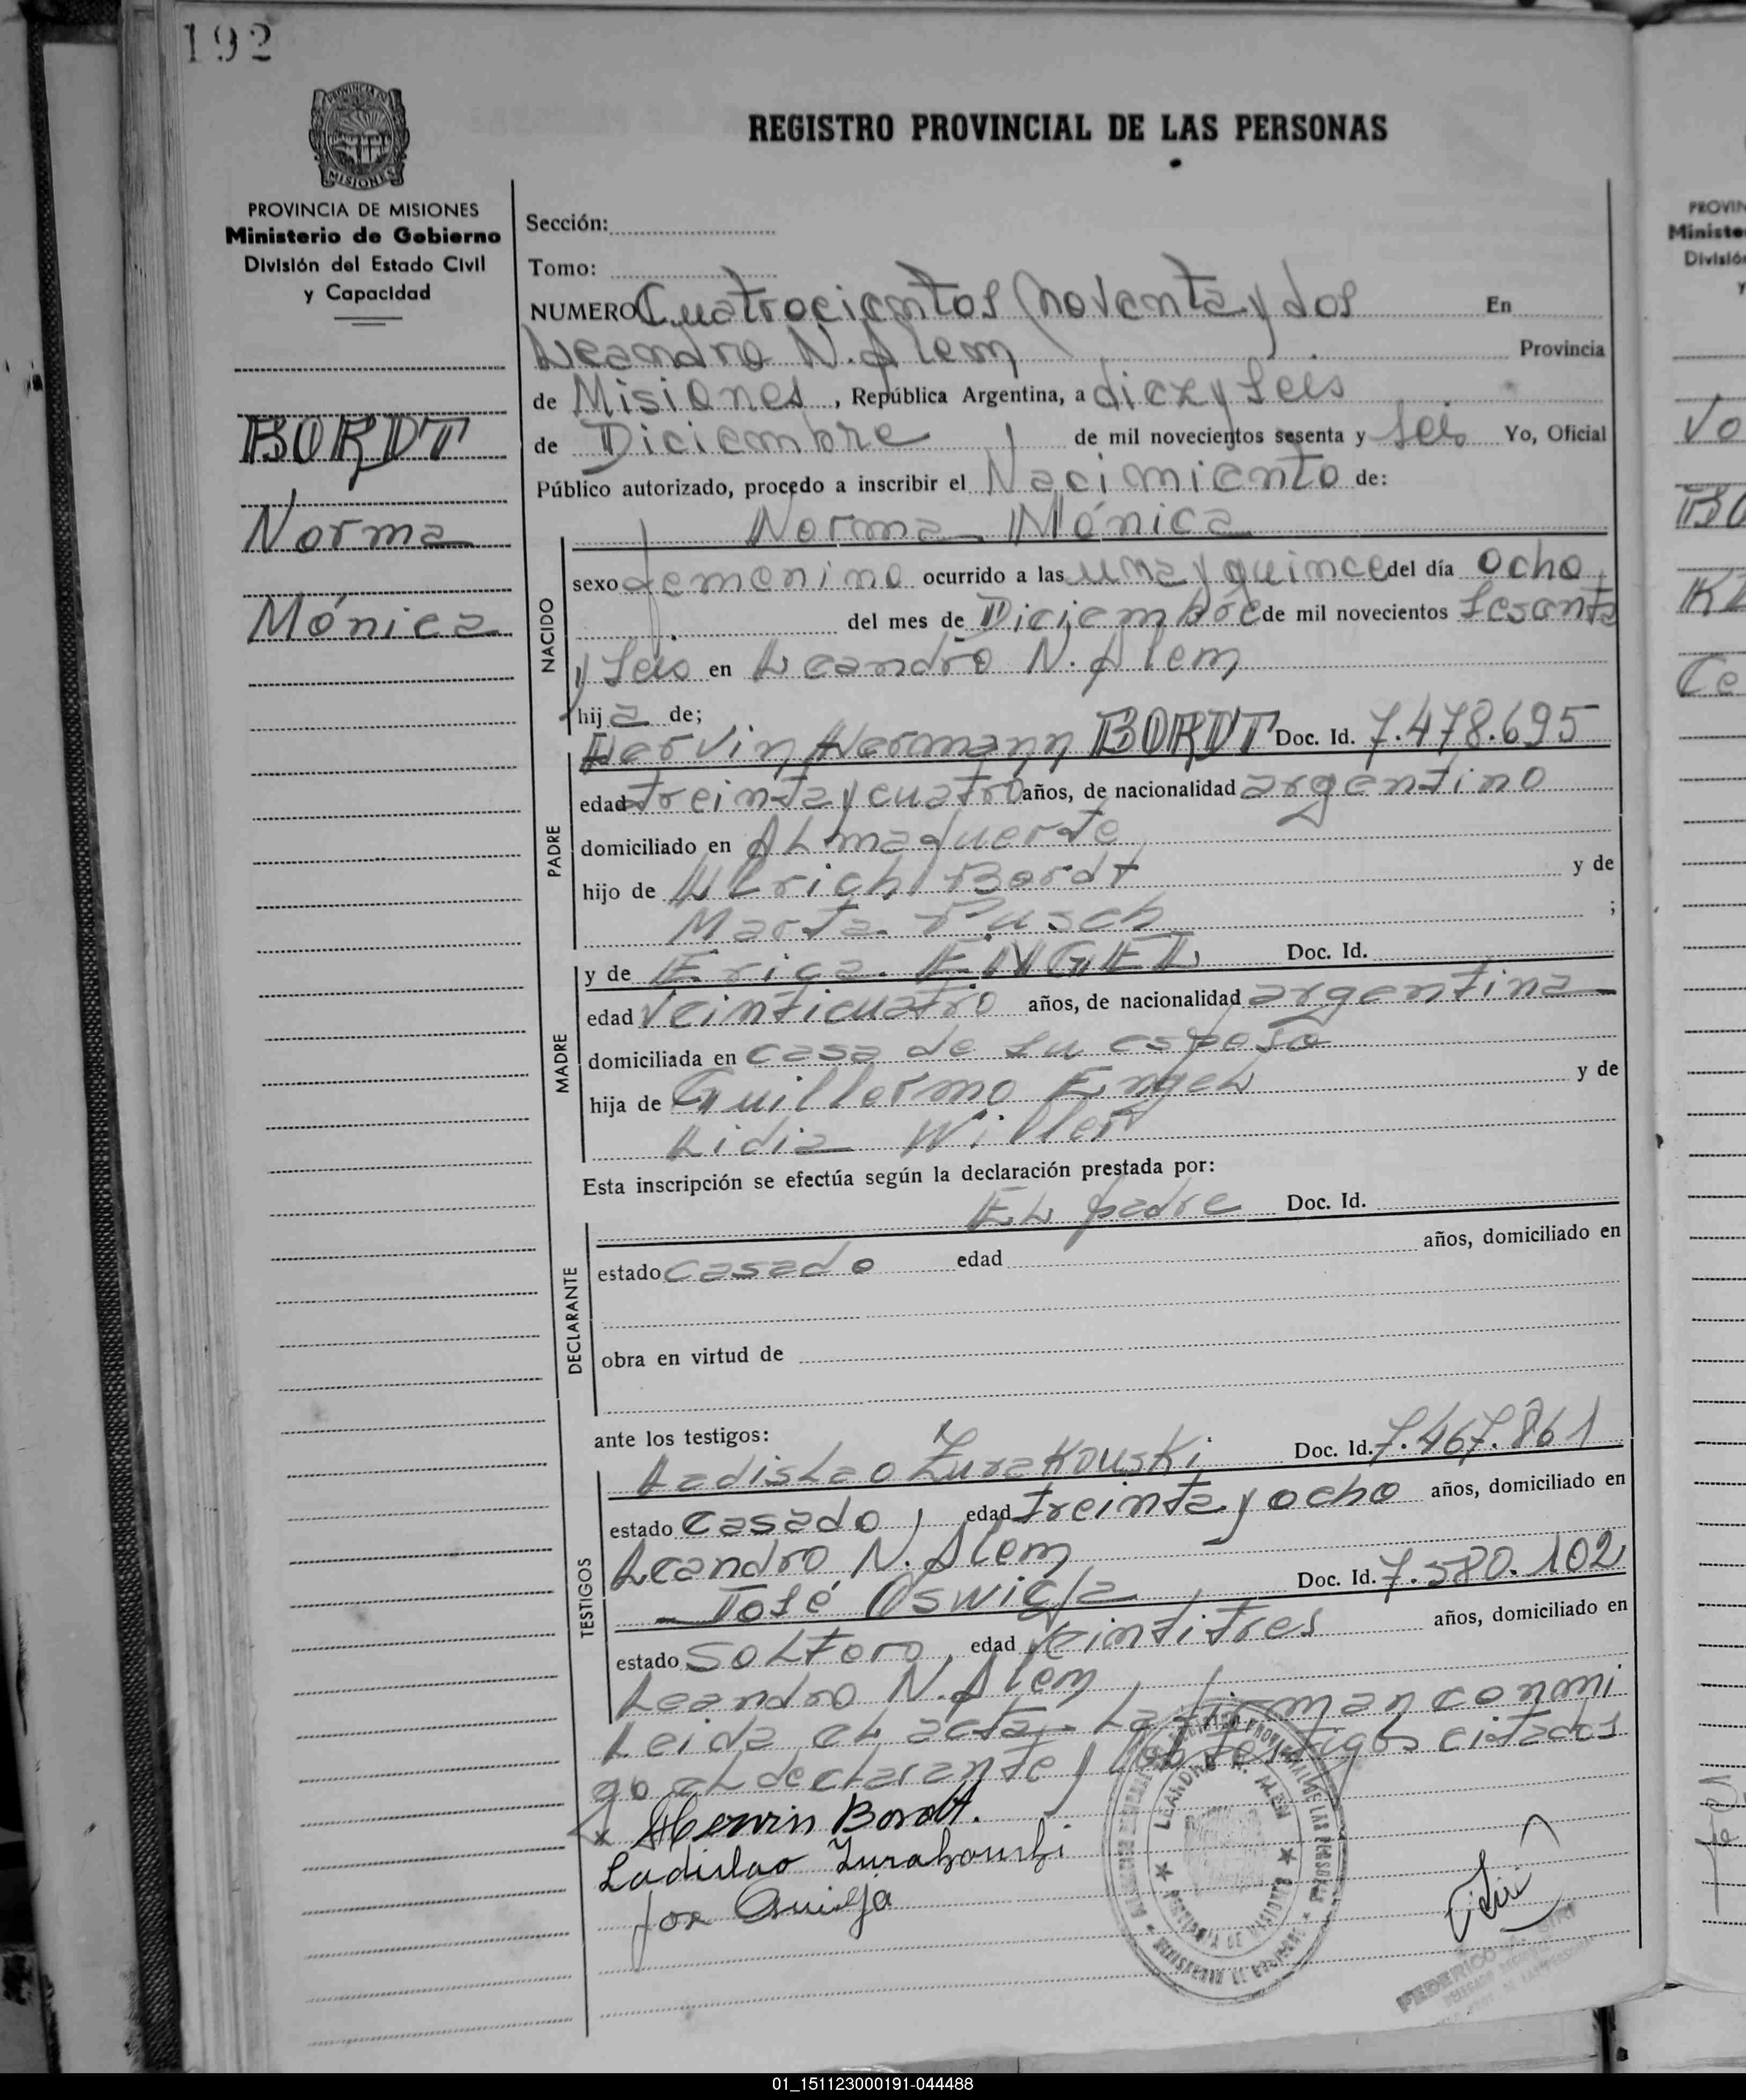 192
REGISTRO PROVINCIAL DE LAS PERSONAS
PROVINCIA DE MISIONES
Ministerio de Gobierno
División del Estado Civil
y Capacidad
BORDT
Norma
Mónica
Sección:
Tomo:
NUMERO Cuatrocientos noventa y dos En
Leandro N. Alem Provincia
de Misiones, República Argentina, a diez y seis
de Diciembre de mil novecientos sesenta y seis Yo, Oficial
Público autorizado, procedo a inscribir el Nacimiento de:
Norma Mónica
NACIDO
sexo femenino ocurrido a las una y quince del día ocho
del mes de Diciembre de mil novecientos sesenta
y seis en Leandro N. Alem
hija de;
PADRE
Hervin Hermann BORDT Doc. Id. 7.478.695
edad treinta y cuatro años, de nacionalidad argentino
domiciliado en Almafuerte
hijo de Ulrich Bordt y de
Marta Pusch ;
MADRE
y de Erica ENGEL Doc. Id.
edad veinticuatro años, de nacionalidad argentina
domiciliada en casa de su esposo
hija de Guillermo Engel y de
Lidia Willer
Esta inscripción se efectúa según la declaración prestada por:
DECLARANTE
El padre Doc. Id.
estado casado edad años, domiciliado en
obra en virtud de
ante los testigos:
TESTIGOS
Ladislao Zurakouski Doc. Id. 7.467.861
estado casado, edad treinta y ocho años, domiciliado en
Leandro N. Alem
José Oswicja Doc. Id. 7.580.102
estado soltero, edad veintitres años, domiciliado en
Leandro N. Alem
Leida el acta, la firman conmi
go el declarante y los testigos citados
x Herwin Bordt.
Ladislao Zurakouski
LEANDRO N. ALEM
PROVINCIA DE MISIONES
MINISTERIO DE GOBIERNO
FEDERICO
PROVIN
Ministe
División
y
01_151123000191-044488